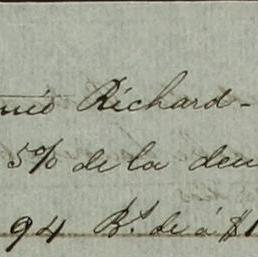 nio Richard-
5% de la deu
94 B.s de á $1